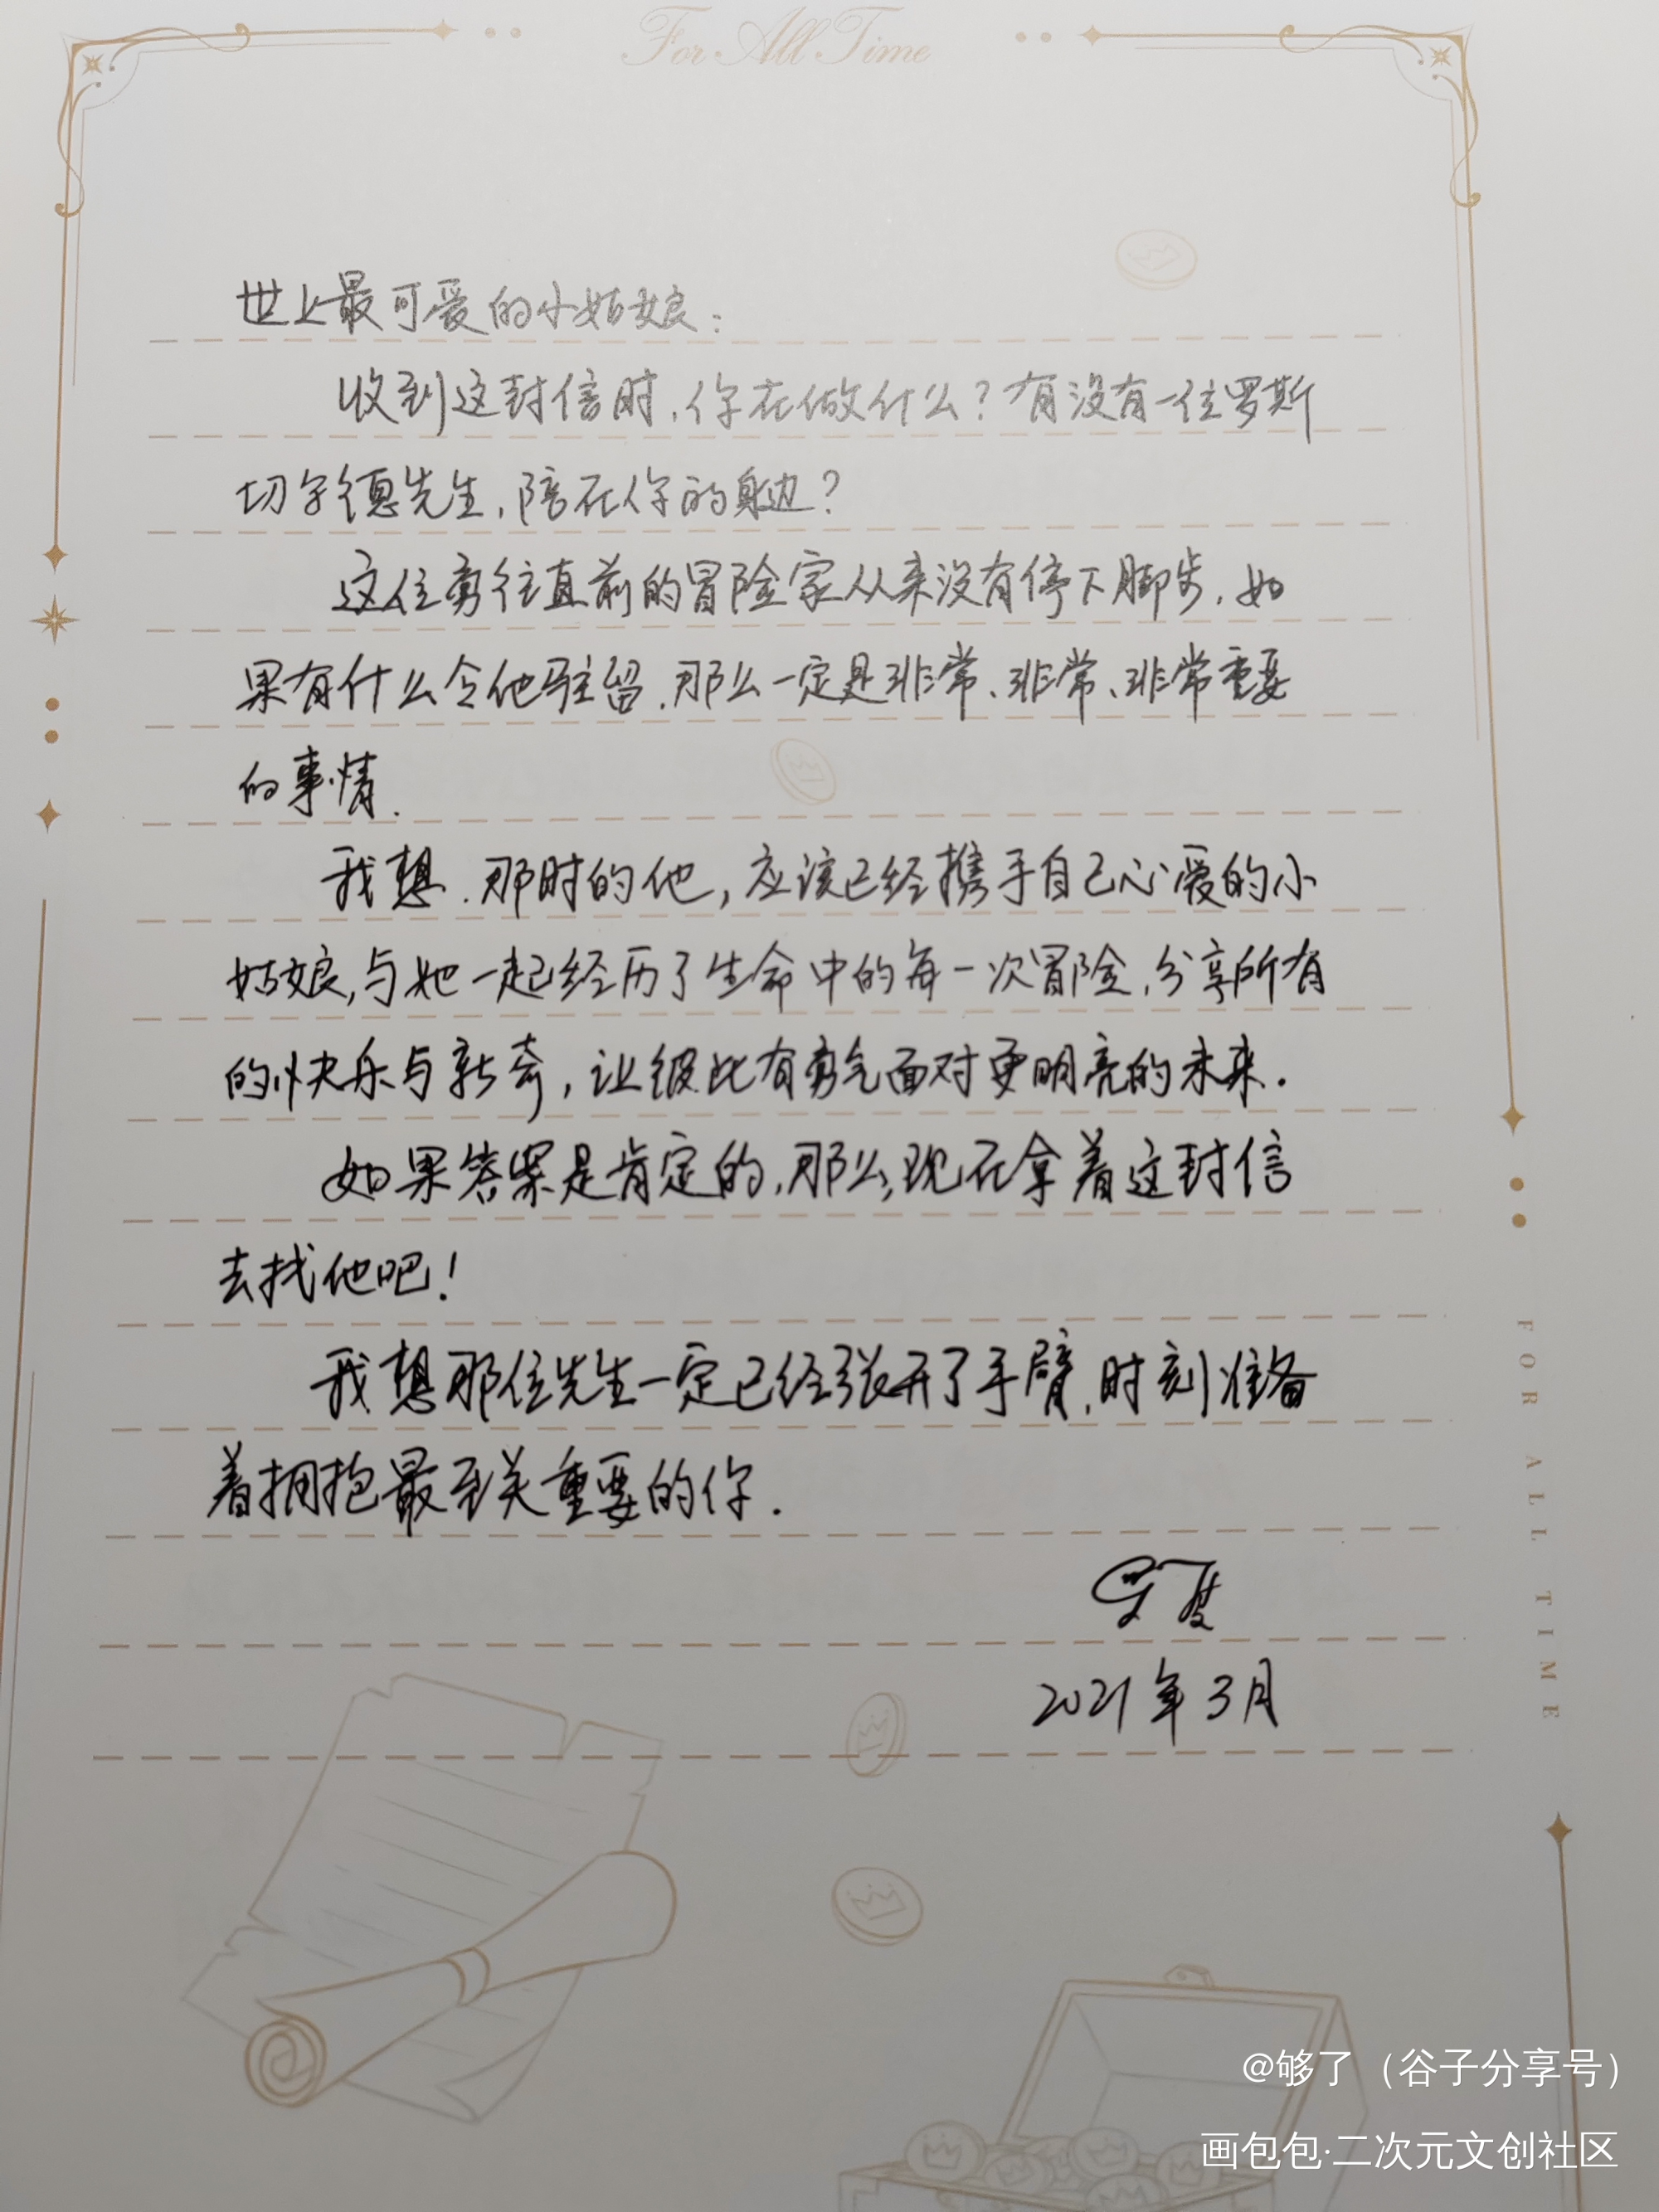 For All Time
世上最可爱的小姑娘：
收到这封信时，你在做什么？有没有一位罗斯
切尔德先生，陪在你的身边？
这位勇往直前的冒险家从来没有停下脚步，如
果有什么令他驻留，那么一定是非常、非常、非常重要
的事情.
我想，那时的他，应该已经携手自己心爱的小
姑娘，与她一起经历了生命中的每一次冒险，分享所有
的快乐与新奇，让彼此有勇气面对更明亮的未来.
如果答案是肯定的，那么，现在拿着这封信
去找他吧！
我想那位先生一定已经张开了手臂，时刻准备
着拥抱最至关重要的你.
2021年3月
FOR ALL TIME
@够了（谷子分享号）
画包包·二次元文创社区